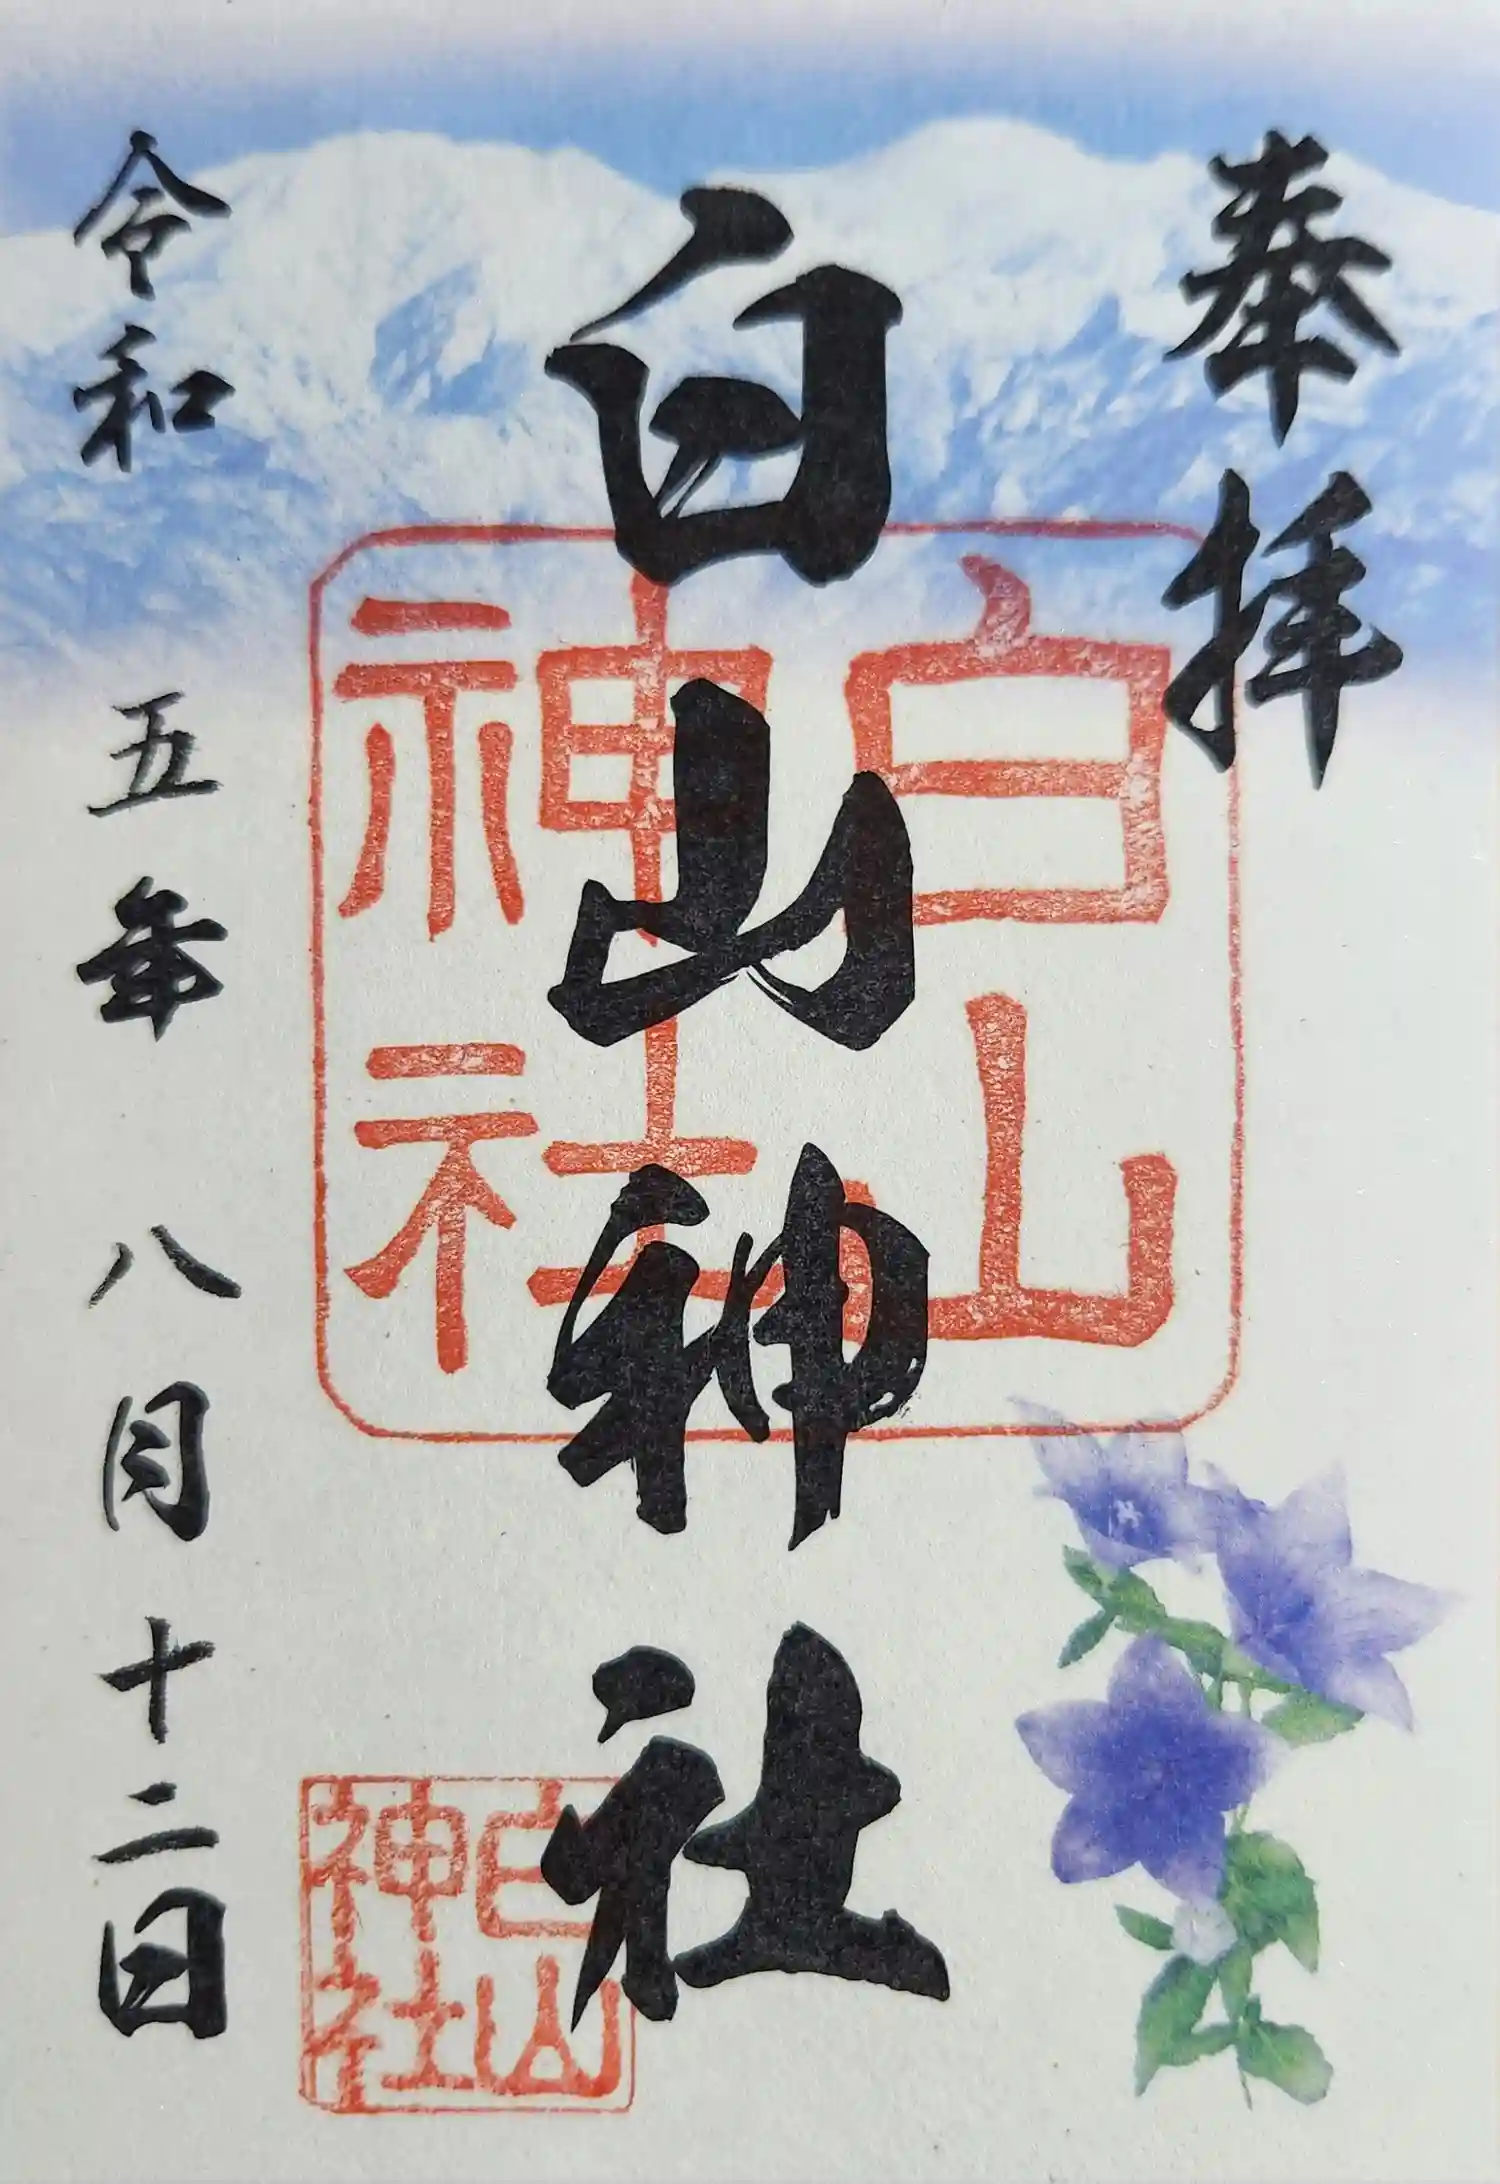 奉拝
白山神社
白山
神社
白山
神社
令和五年八月十二日